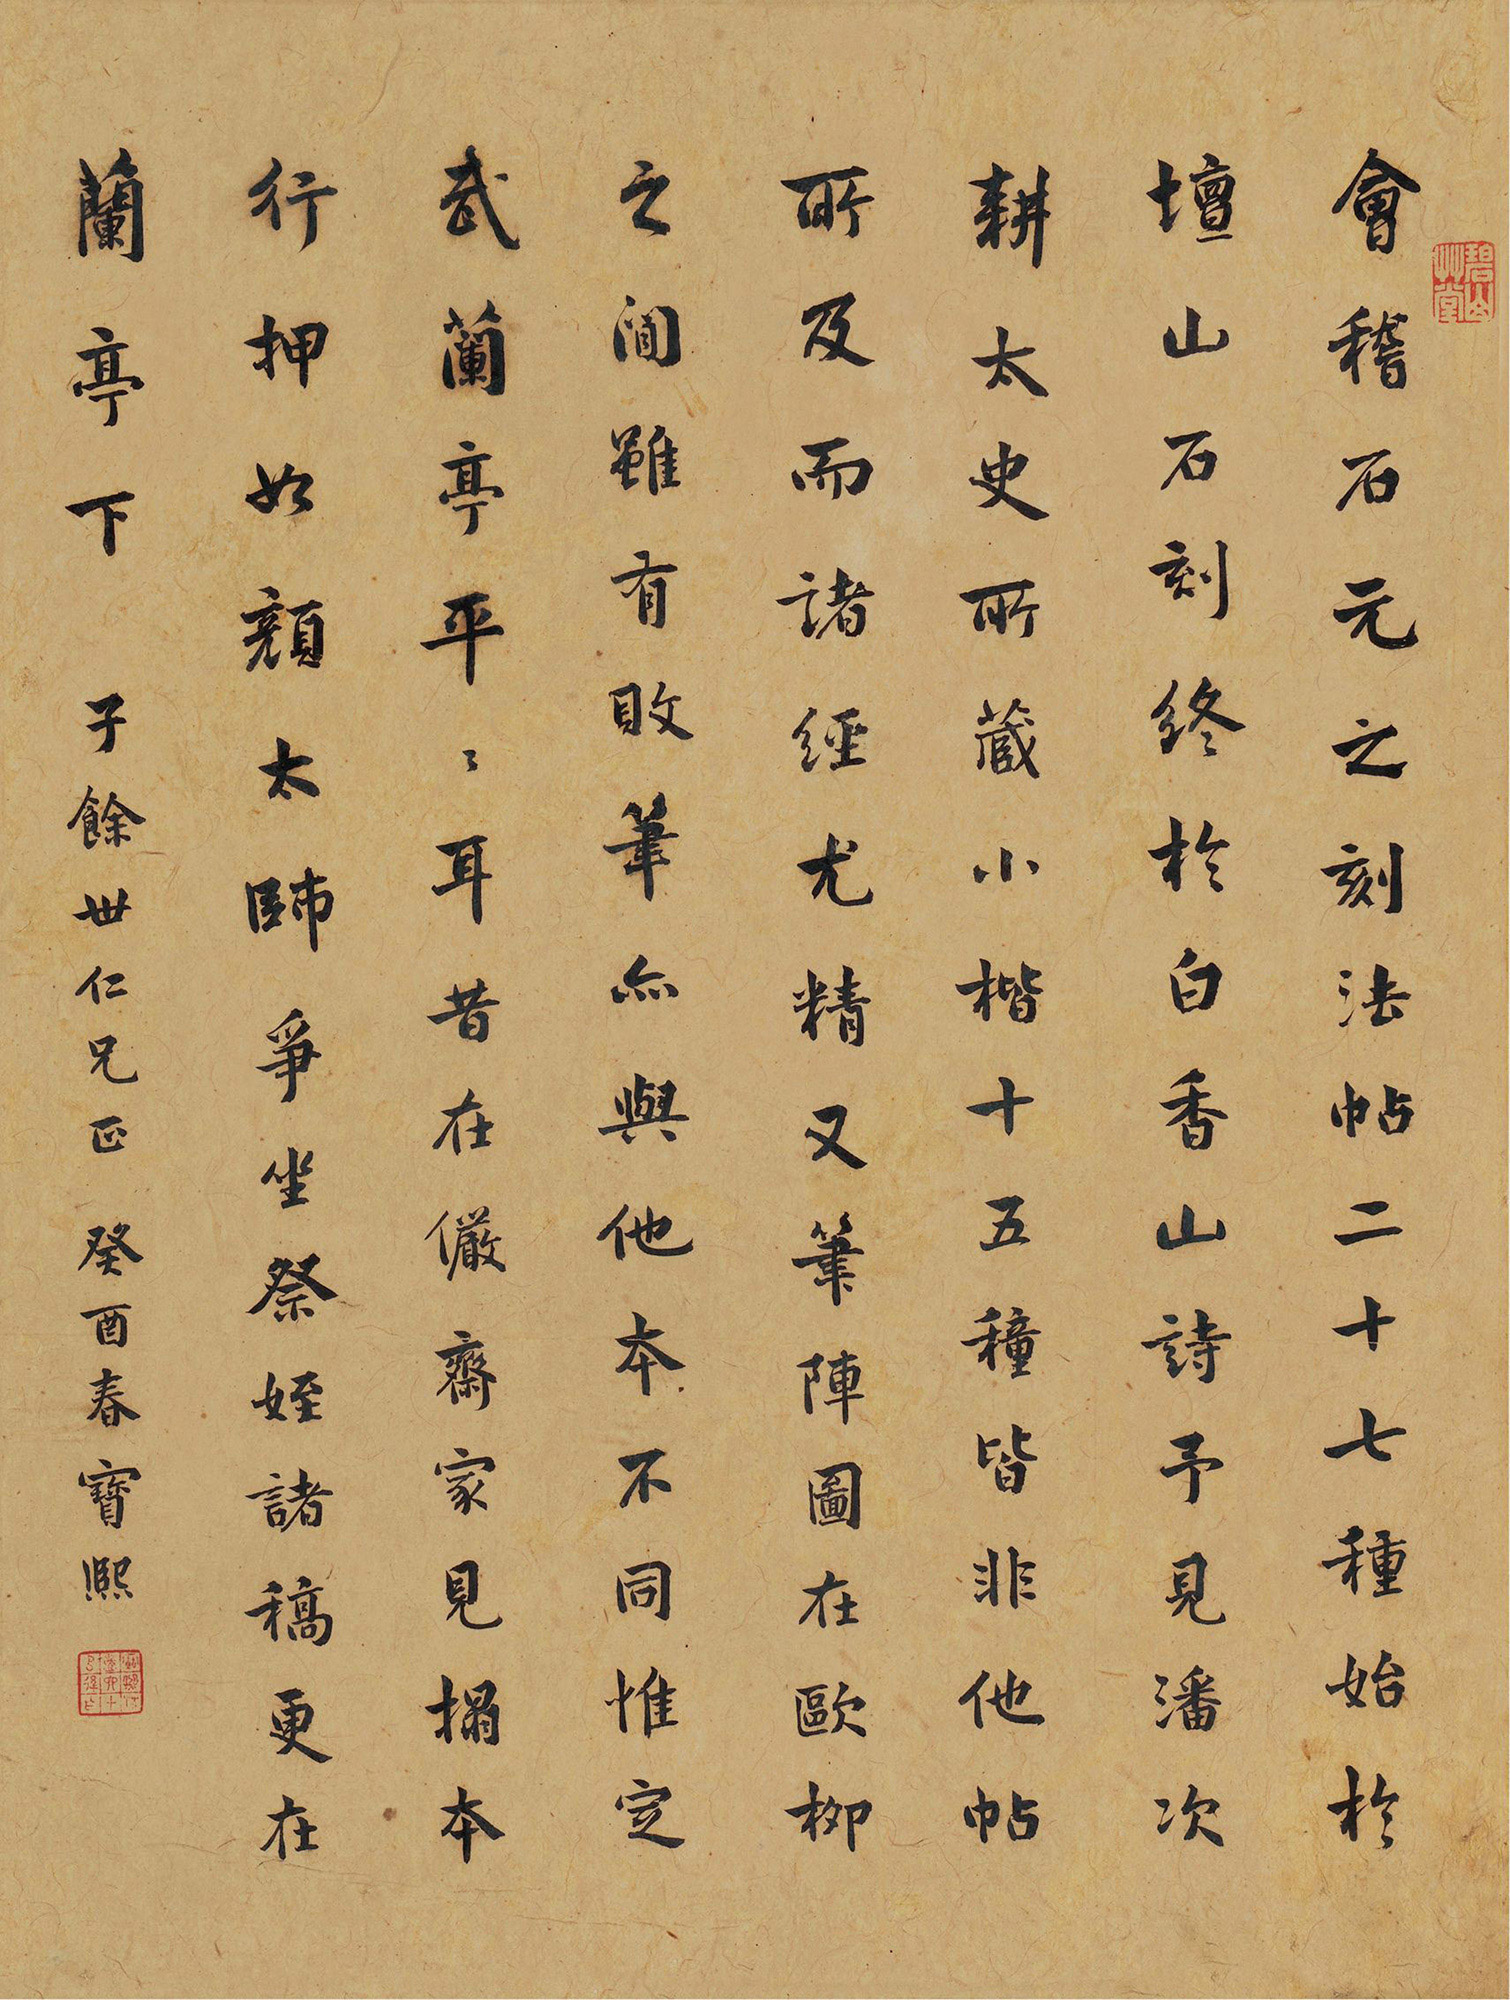 會稽石元之刻法帖二十七種始於
壇山石刻終於白香山詩予見潘次
耕太史所藏小楷十五種皆非他帖
所及而諸經尤精又筆陣圖在歐柳
之間雖有敗筆亦與他本不同惟定
武蘭亭平〻耳昔在儼齋家見搨本
行押如顏太師爭坐祭姪諸稿更在
蘭亭下 子餘世仁兄正 癸酉春寶熙
碧山草堂